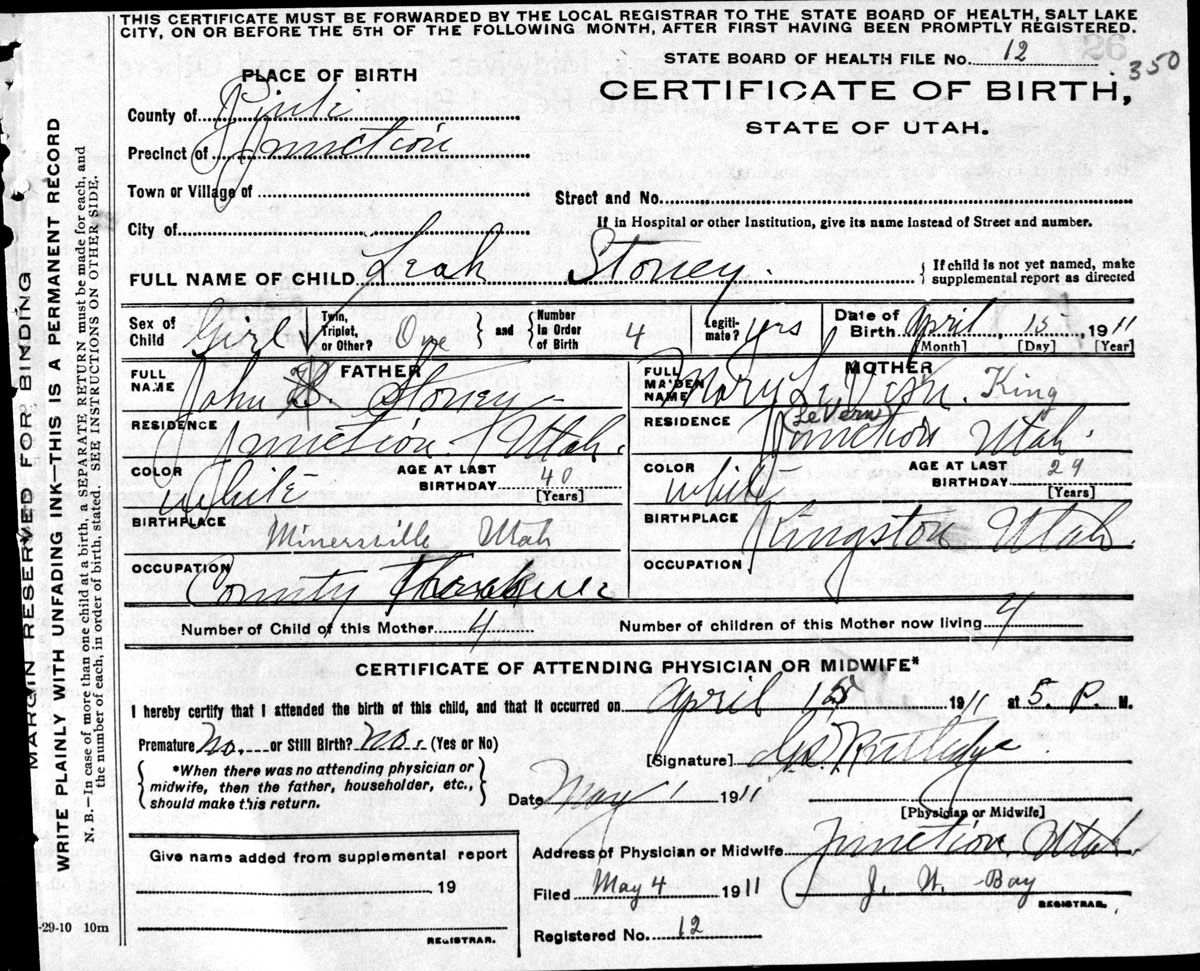 THIS CERTIFICATE MUST BE FORWARDED BY THE LOCAL REGISTRAR TO THE STATE BOARD OF HEALTH, SALT LAKE
CITY, ON OR BEFORE THE 5TH OF THE FOLLOWING MONTH, AFTER FIRST HAVING BEEN PROMPTLY REGISTERED.
STATE BOARD OF HEALTH FILE No. 12
26
350
PLACE OF BIRTH
CERTIFICATE OF BIRTH,
STATE OF UTAH.
County of Piute
Precinct of Junction
Town or Village of
Street and No.
If in Hospital or other Institution, give its name instead of Street and number.
City of
FULL NAME OF CHILD Leah Stoney.
If child is not yet named, make
supplemental report as directed
Sex of Child Girl Twin, Triplet, or Other? One and Number in Order of Birth 4 Legiti-mate? yes Date of Birth April 15 1911
[Month] [Day] [Year]
FATHER
FULL NAME John H. Stoney
RESIDENCE Junction Utah.
COLOR White AGE AT LAST BIRTHDAY 40 [Years]
BIRTHPLACE Minersville Utah
OCCUPATION County
MOTHER
FULL MAIDEN NAME Mary LeVern King
(LeVern)
RESIDENCE Junction Utah.
COLOR White AGE AT LAST BIRTHDAY 29 [Years]
BIRTHPLACE Kingston Utah.
OCCUPATION
Number of Child of this Mother 4 Number of children of this Mother now living 4
CERTIFICATE OF ATTENDING PHYSICIAN OR MIDWIFE*
I hereby certify that I attended the birth of this child, and that it occurred on April 15 1911 at 5. P. M.
Premature No. or Still Birth? No. (Yes or No)
[Signature]
*When there was no attending physician or
midwife, then the father, householder, etc.,
should make this return.
Date May 1 1911
[Physician or Midwife]
Give name added from supplemental report
19
REGISTRAR.
Address of Physician or Midwife Junction Utah.
Filed May 4 1911 J. W. Bay
REGISTRAR.
Registered No. 12
-29-10 10m
MARGIN RESERVED FOR BINDING
WRITE PLAINLY WITH UNFADING INK—THIS IS A PERMANENT RECORD
N. B.—In case of more than one child at a birth, a SEPARATE RETURN must be made for each, and
the number of each, in order of birth, stated. SEE INSTRUCTIONS ON OTHER SIDE.